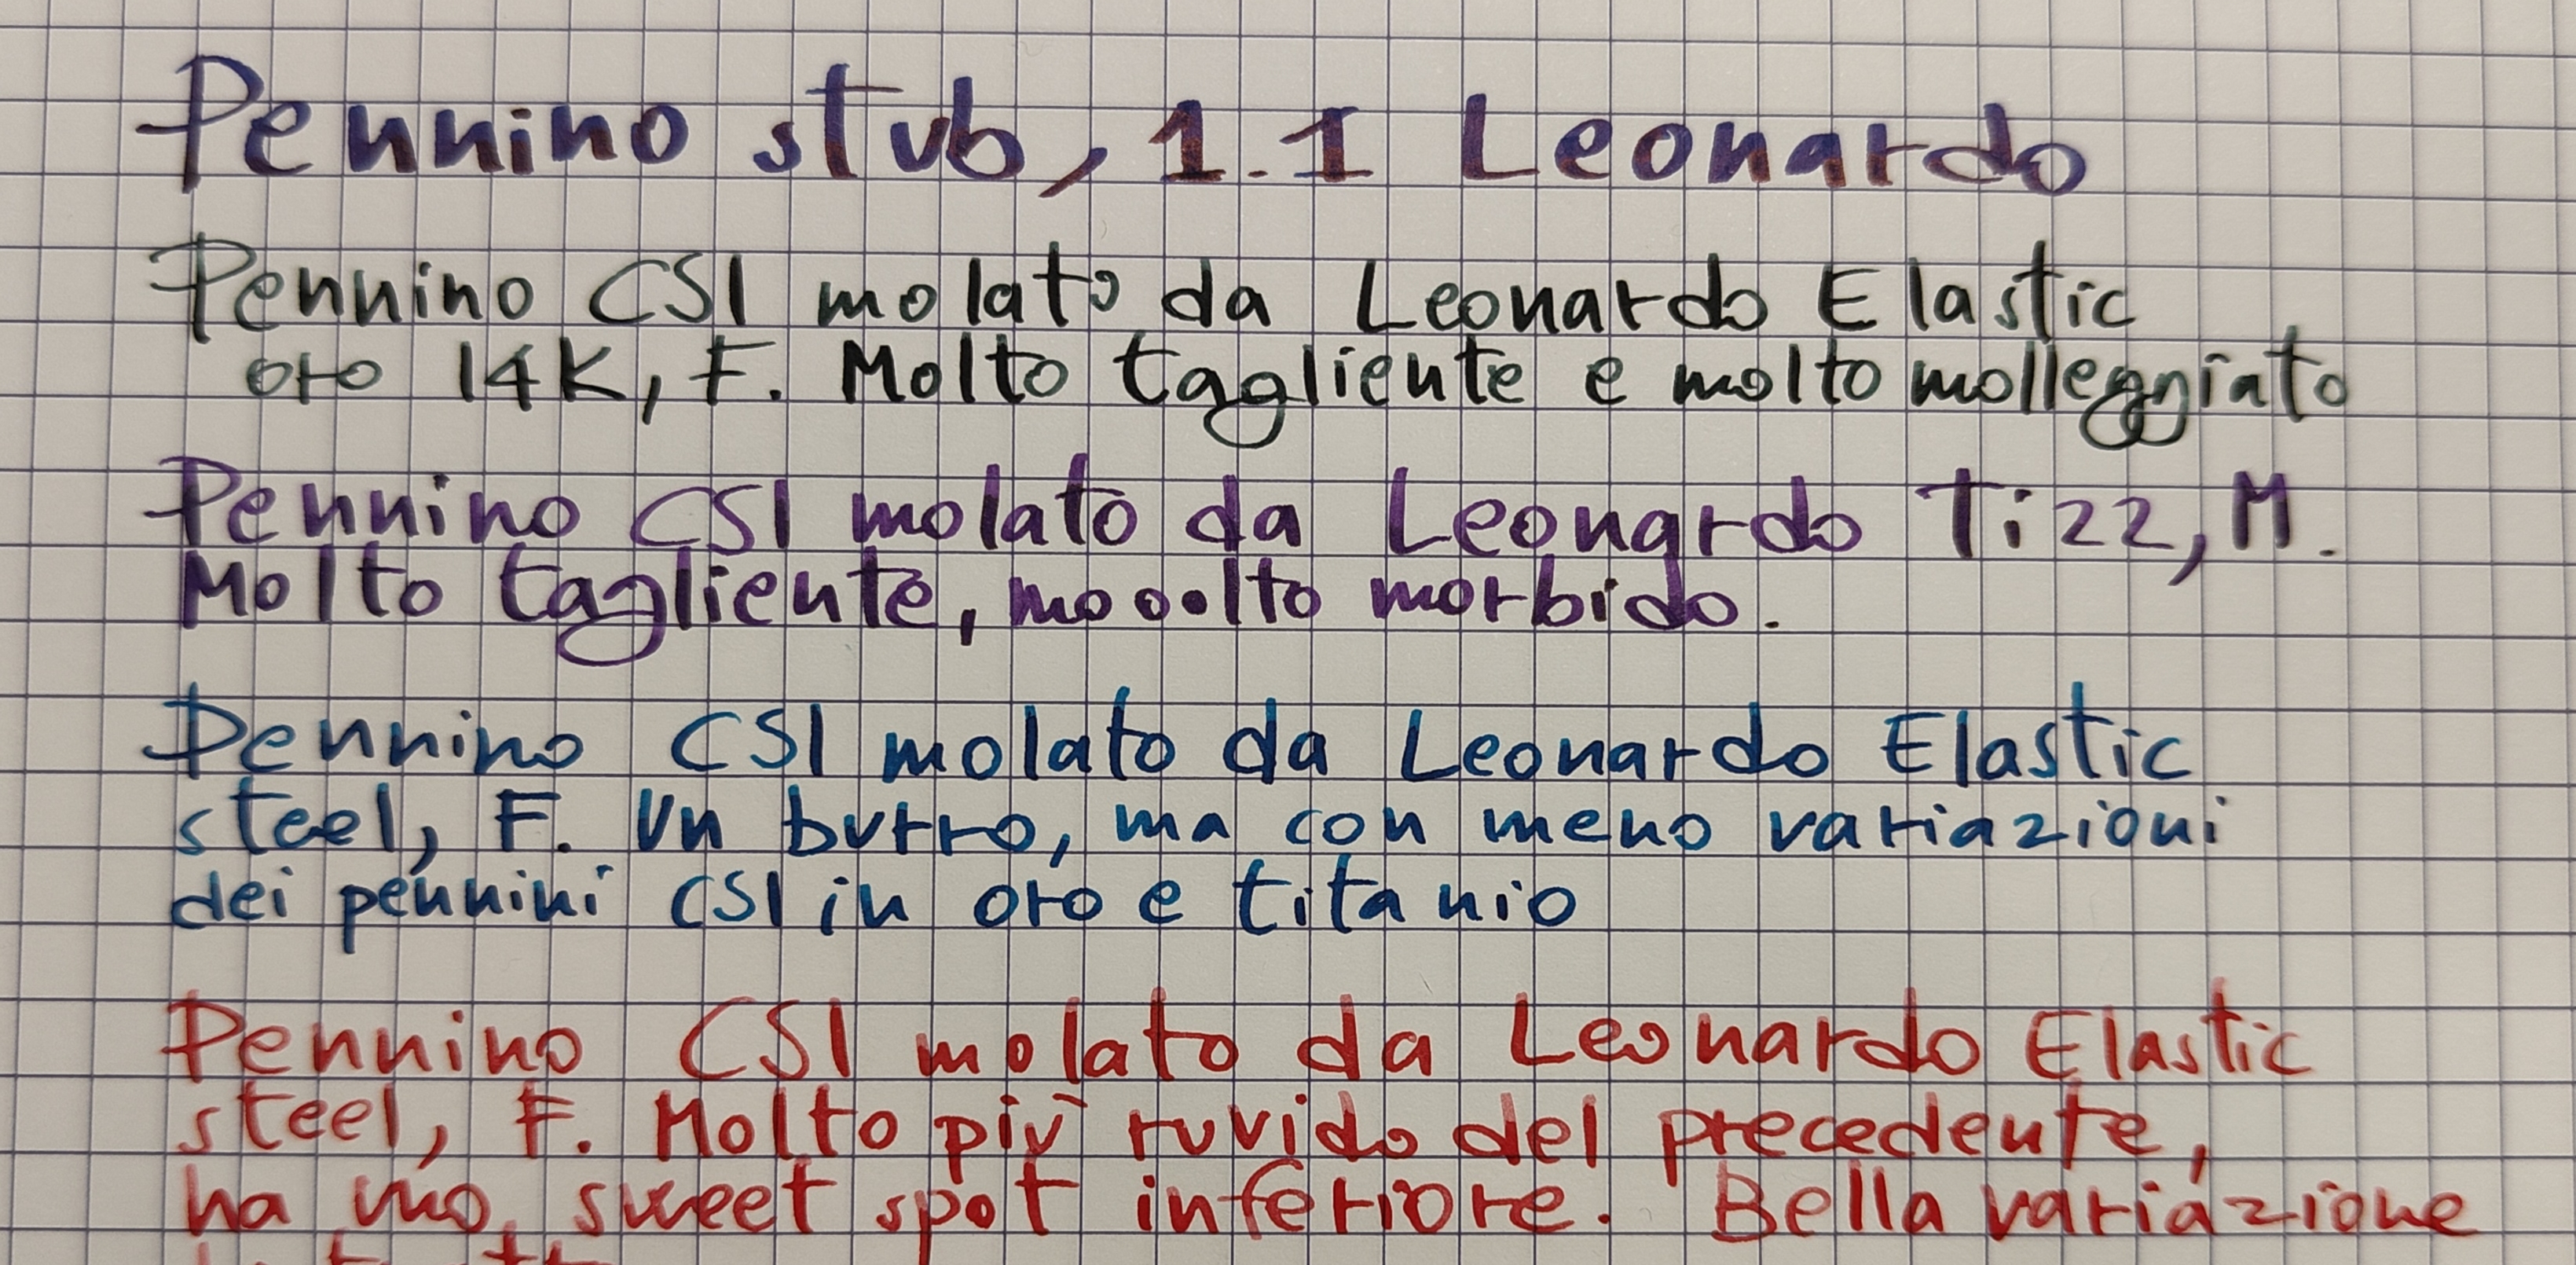 Pennino stub, 1.1 Leonardo
Pennino CSI molato da Leonardo Elastic
oro 14K, F. Molto tagliente e molto molleggiato
Pennino CSI molato da Leonardo Ti22, M.
Molto tagliente, mooolto morbido.
Pennino CSI molato da Leonardo Elastic
steel, F. Un burro, ma con meno variazioni
dei pennini CSI in oro e titanio
Pennino CSI molato da Leonardo Elastic
steel, F. Molto più ruvido del precedente,
ha uno sweet spot inferiore. Bella variazione